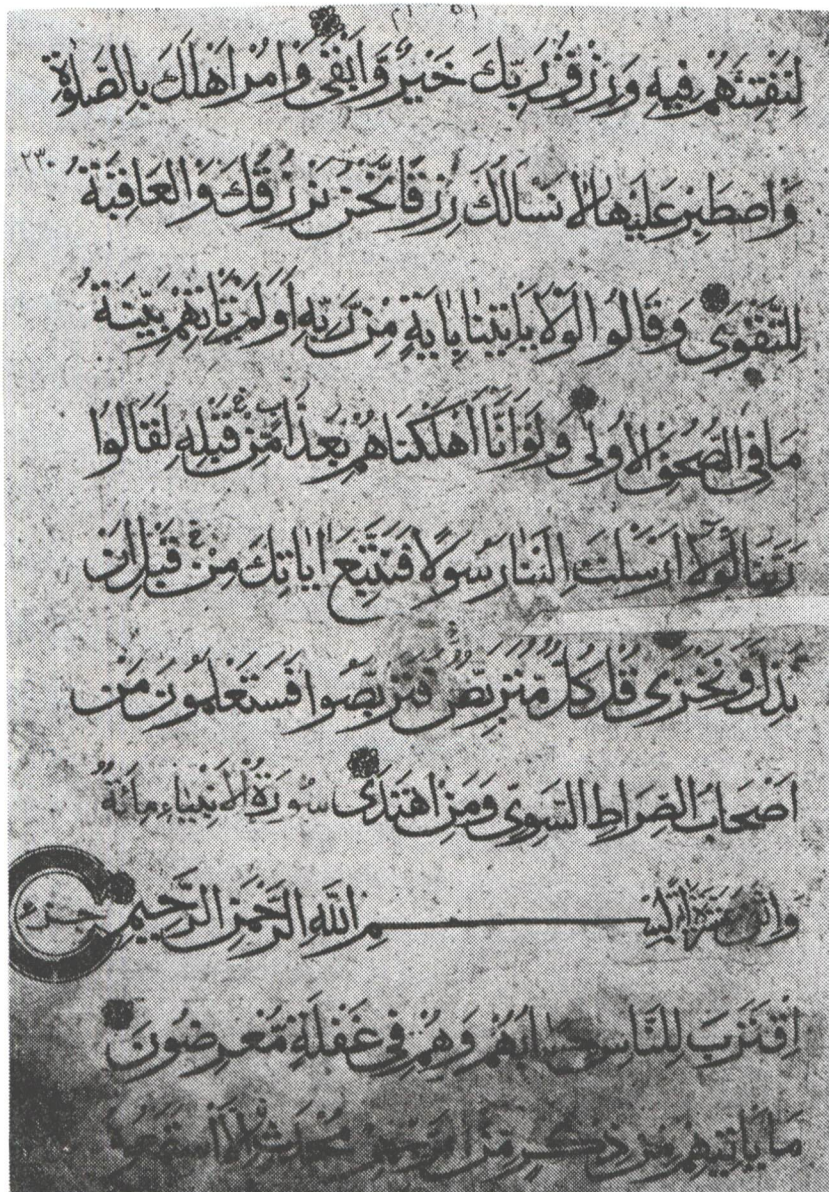 لِنَفْتِنَهُمْ فِيهِ وَرِزْقُ رَبِّكَ خَيْرٌ وَأَبْقَىٰ وَأْمُرْ أَهْلَكَ بِالصَّلَوٰةِ
٢٣٠
وَاصْطَبِرْ عَلَيْهَا لَا نَسْأَلُكَ رِزْقًا نَّحْنُ نَرْزُقُكَ وَالْعَاقِبَةُ
لِلتَّقْوَىٰ وَقَالُوا لَوْلَا يَأْتِينَا بِآيَةٍ مِّن رَّبِّهِ أَوَلَمْ تَأْتِهِم بَيِّنَةُ
مَا فِي الصُّحُفِ الْأُولَىٰ وَلَوْ أَنَّا أَهْلَكْنَاهُمْ بِعَذَابٍ مِّنْ قَبْلِهِ لَقَالُوا
رَبَّنَا لَوْلَا أَرْسَلْتَ إِلَيْنَا رَسُولًا فَنَتَّبِعَ آيَاتِكَ مِنْ قَبْلِ أَنْ
نَذِلَّ وَنَخْزَىٰ قُلْ كُلٌّ مُّتَرَبِّصٌ فَتَرَبَّصُوا فَسَتَعْلَمُونَ مَنْ
أَصْحَابُ الصِّرَاطِ السَّوِيِّ وَمَنِ اهْتَدَىٰ سُورَةُ الْأَنْبِيَاءِ مِائَةٌ
وَاثْنَتَا عَشْرَةَ آيَةً بِسْمِ اللَّهِ الرَّحْمَٰنِ الرَّحِيمِ جزء
اِقْتَرَبَ لِلنَّاسِ حِسَابُهُمْ وَهُمْ فِي غَفْلَةٍ مُّعْرِضُونَ
مَا يَأْتِيهِمْ مِنْ ذِكْرٍ مِنْ رَبِّهِمْ مُحْدَثٍ إِلَّا اسْتَمَعُوهُ